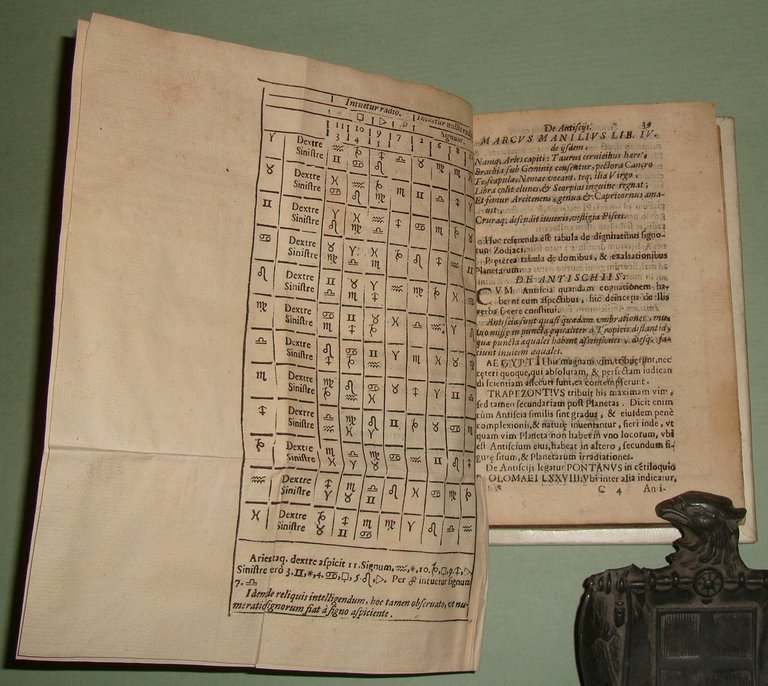 Intuetur radio.
Signum.
11 10 9 7 2 6 8
3 4 5
♈ Dextre ♒ ♑ ♐ ♎
Sinistre ♊ ♋ ♌
♉ Dextre
Sinistre ♋ ♌ ♍
♊ Dextre ♈ ♓ ♒ ♐
Sinistre ♌ ♍ ♎
♋ Dextre ♉ ♈ ♓ ♑
Sinistre ♍ ♎ ♏
♌ Dextre ♊ ♉ ♈ ♒
Sinistre ♎ ♏ ♐
♍ Dextre ♋ ♊ ♉ ♓
Sinistre ♏ ♐ ♑
♎ Dextre ♌ ♋ ♊ ♈
Sinistre
♏ Dextre ♍ ♌ ♋ ♉
Sinistre
♐ Dextre ♎ ♍ ♌ ♊
Sinistre
♑ Dextre ♏ ♎ ♍ ♋
Sinistre ♓ ♈ ♉
♒ Dextre ♐ ♏ ♎ ♌
Sinistre ♈ ♉ ♊
♓ Dextre ♑ ♐ ♏ ♍
Sinistre ♉ ♊ ♋
Aries dextre aspicit 11. Signum, ♒, *, 10. ♑, □, 9. ♐, ▷.
Sinistre 3. ♊, *, 4. ♋, □, 5. ♌, ▷. Per ☍ intuetur signum
7. ♎
Idem de reliquis intelligendum, hoc tamen observato, ut nu-
meratio signorum fiat à signo aspiciente.
De Antiscijs. 39
MARCVS MANILIVS LIB. IV.
de ijsdem.
Namq; Aries capiti: Taurus cervicibus hæret
Brachia sub Geminis censentur, pectora Cancro
Te scapulæ, Nemæe vocant, teq; ilia Virgo.
Libra colit clunes, & Scorpius inguine regnat;
Et femur Arcitenens, genua & Capricornus ama-
vit,
Cruraq; defendit iuvenis, vestigia Pisces.
Huc referenda est tabula de dignitatibus signo-
rum Zodiaci.
Præterea tabula de domibus, & exaltationibus
Planetarum.
DE ANTISCHIIS.
CVM Antiscia quandam cognitionem ha-
beant cum aspectibus, hic deinceps de illis
verba facere constitui.
Antiscia sunt quasi quædam umbrationes, mu-
tuo missæ in puncta æqualiter à Tropicis distantia,
quæ puncta æquales habent ascensiones, diesq; fa-
ciunt invicem æquales.
AEGYPTII his magnam vim tribuerunt, nec
ceteri quoque, qui absolutam, & perfectam iudican-
di scientiam assecuti sunt, ea contempserunt.
TRAPEZONTIVS tribuit his maximam vim,
sed tamen secundariam post Planetas. Dicit enim
cùm Antiscia similis sint gradus, & eiusdem penè
complexionis, & naturæ inveniantur, fieri inde, vt
quam vim Planeta non habet in vno locorum, vbi
est Antiscium eius, habeat in altero, secundum fi-
guræ situm, & Planetarum irradiationes.
De Antiscijs legatur PONTANVS in cētiloquio
PTOLOMAEI LXXVIII. Vbi inter alia indicatur,
C 4 Anti-